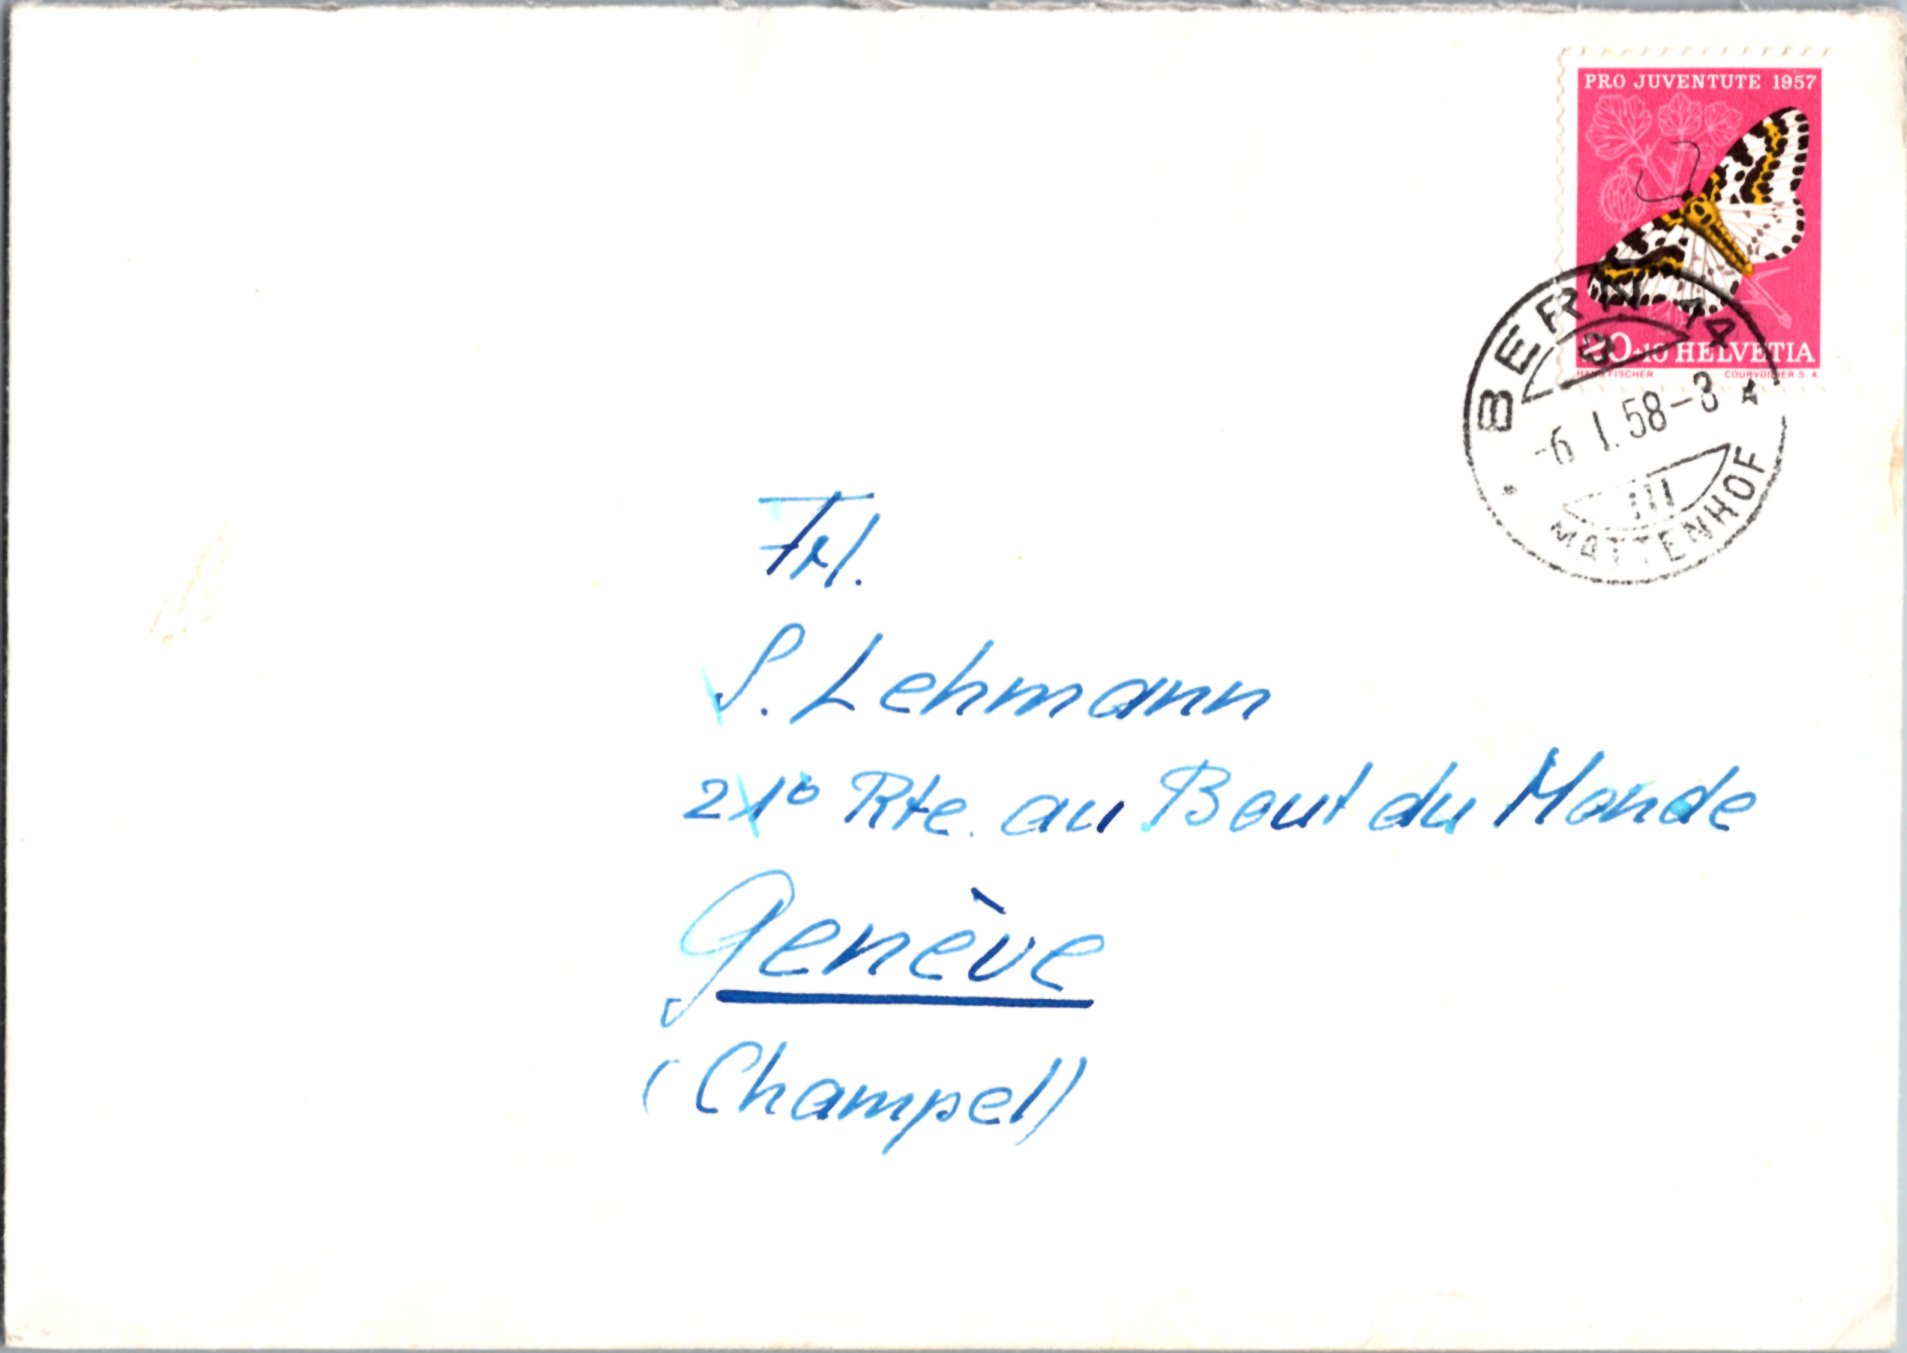 PRO JUVENTUTE 1957
20+10 HELVETIA
HANS FISCHER COURVOISIER S A
BERN 14
-6 I. 58-8
III
MATTENHOF
Frl.
S. Lehmann
Rte. au Bout du Monde
Genève
(Champel)